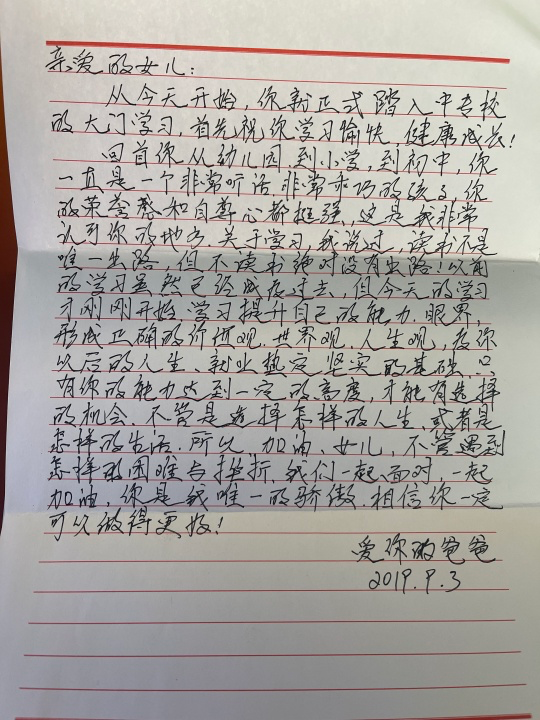 亲爱的女儿：
从今天开始，你就正式踏入中专校
的大门学习，首先祝你学习愉快，健康成长！
回首你从幼儿园，到小学，到初中，你
一直是一个非常听话，非常乖巧的孩子，你
的荣誉感和自尊心都挺强，这是我非常
认可你的地方。关于学习，我说过，读书不是
唯一出路，但不读书绝对没有出路！以前
的学习虽然已经成为过去，但今天的学习
才刚刚开始，学习提升自己的能力，眼界，
形成正确的价值观，世界观，人生观，为你
以后的人生、就业奠定坚实的基础，只
有你的能力达到一定的高度，才能有选择
的机会，不管是选择怎样的人生，或者是
怎样的生活。所以，加油，女儿，不管遇到
怎样的困难与挫折，我们一起面对，一起
加油，你是我唯一的骄傲，相信你一定
可以做得更好！
爱你的爸爸
2019.9.3